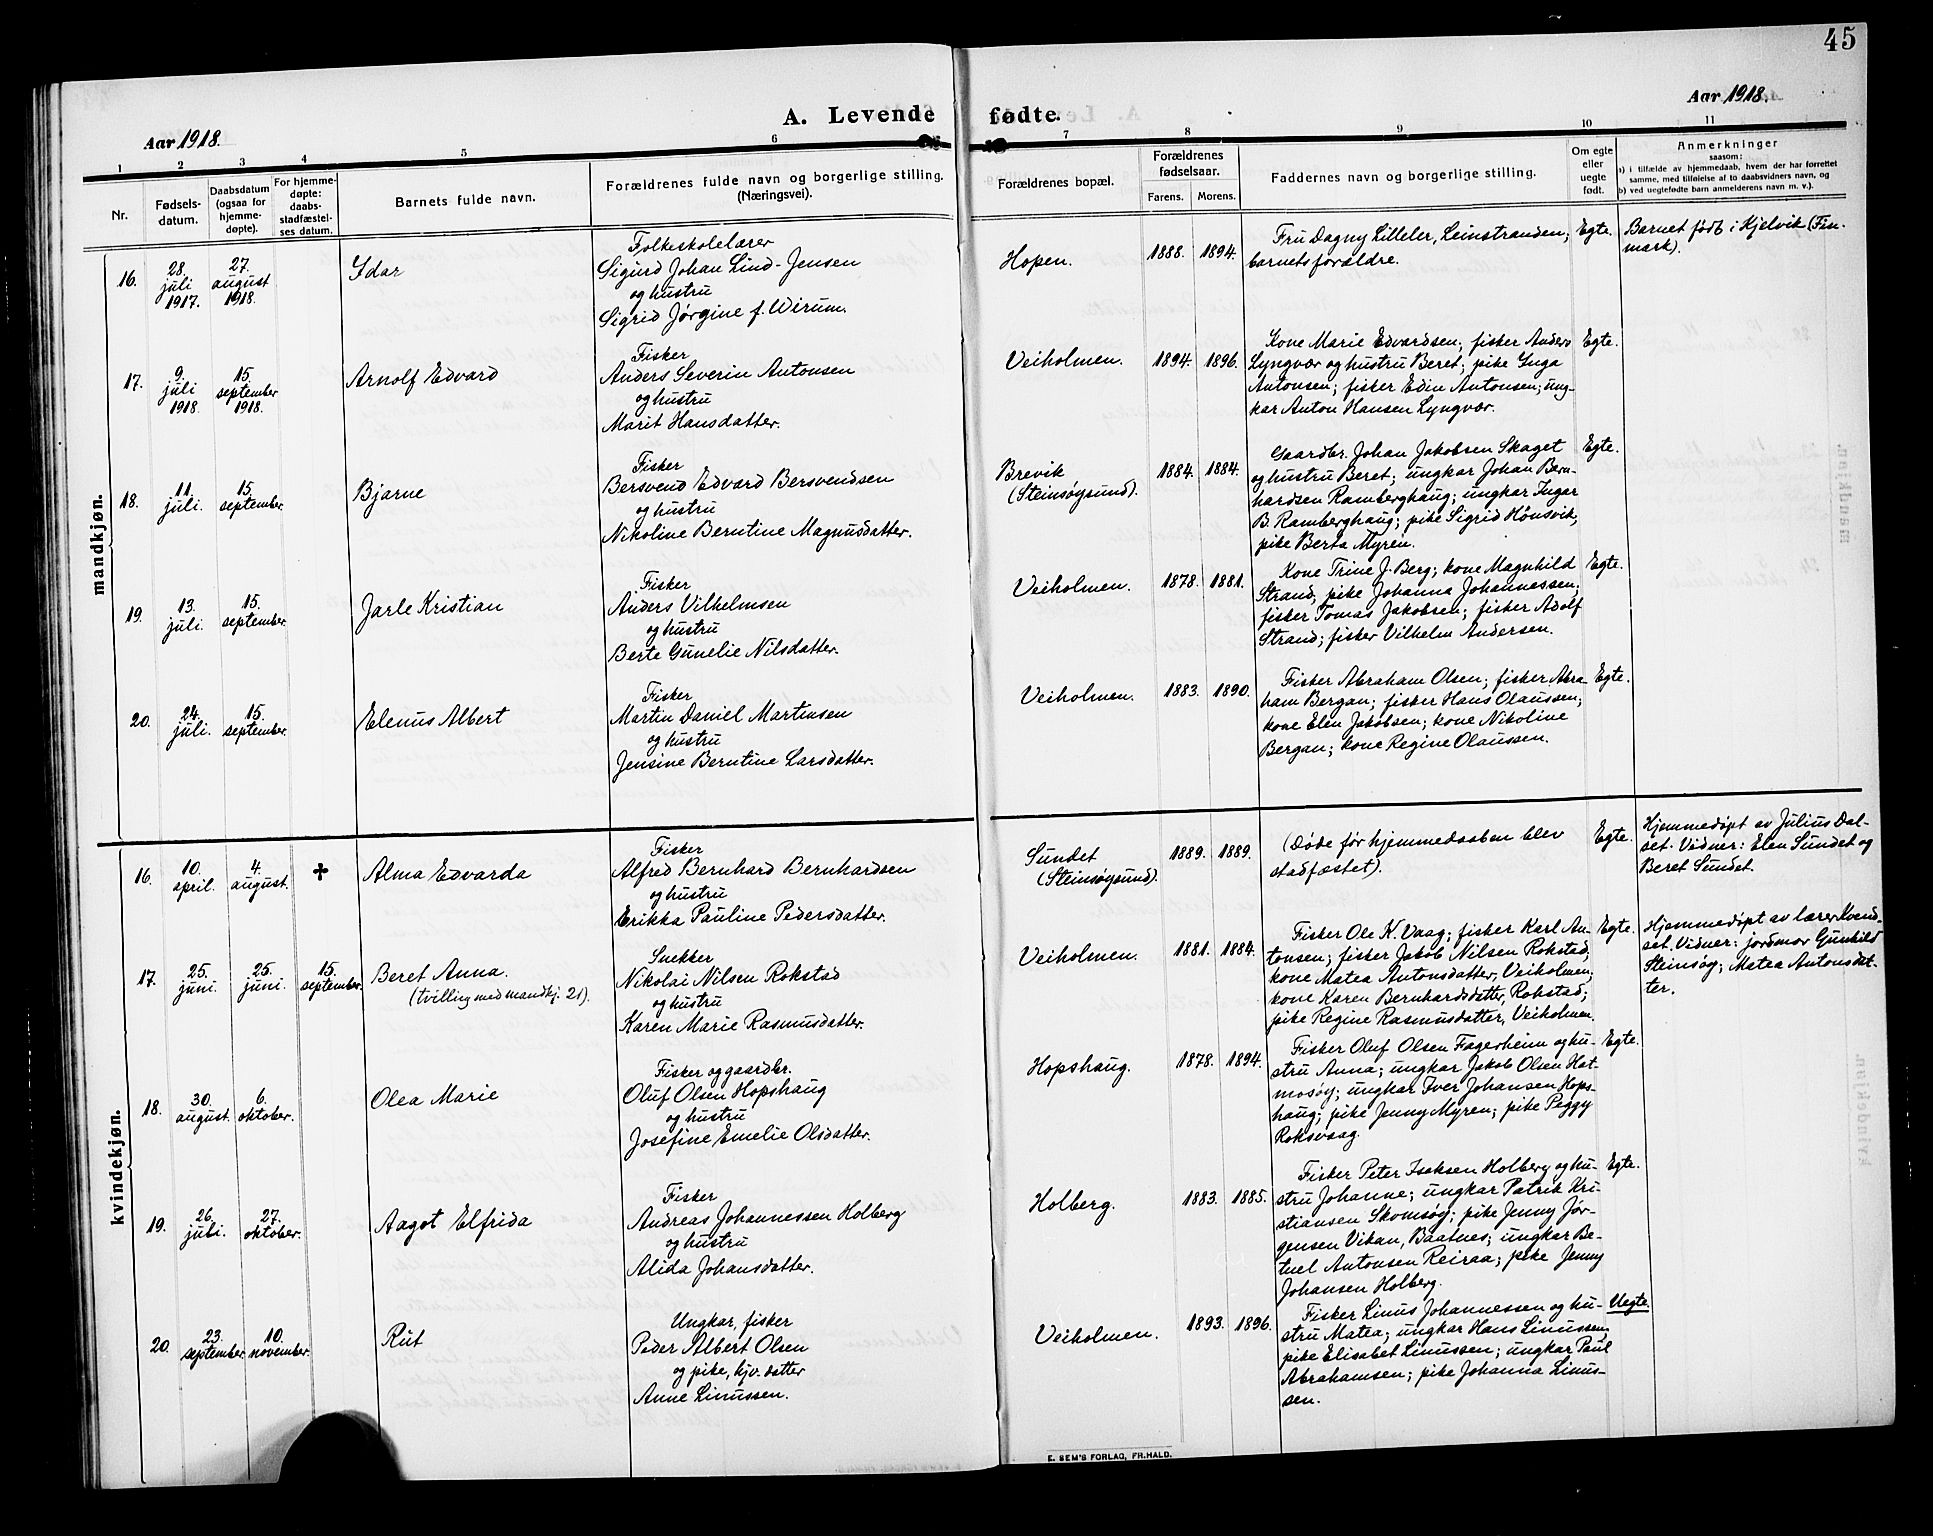 45
A. Levende fødte.
Aar 1918.
Aar 1918.
1 2 3 4 5 6 7 8 9 10 11
Nr.
Fødsels-
datum.
Daabsdatum
(ogsaa for
hjemme-
døpte).
For hjemme-
døpte:
daabs-
stadfæstel-
ses datum.
Barnets fulde navn.
Forældrenes fulde navn og borgerlige stilling.
(Næringsvei).
Forældrenes bopæl.
Forældrenes
fødselsaar.
Farens. Morens.
Faddernes navn og borgerlige stilling.
Om egte
eller
uegte
født.
Anmerkninger
saasom:
a) i tilfælde av hjemmedaab, hvem der har forrettet
samme, med tilføielse af to daabsvidners navn, og
b) ved uegtefødte barn anmelderens navn m. v.).
mandkjøn.
16.
28.
juli
1917.
27.
august
1918.
Idar
Folkeskolelærer
Sigurd Johan Lind-Jensen
og hustru
Sigrid Jørgine f. Wirum.
Hopen.
1888. 1894.
Fru Dagny Lilleler, Leinstranden;
barnets forældre.
Egte.
Barnet født i Kjelvik (Fin-
mark).
17.
9.
juli
1918.
15.
september
1918.
Arnolf Edvard
Fisker
Anders Severin Antonsen
og hustru
Marit Hansdatter.
Veiholmen.
1894. 1896.
Kone Marie Edvardsen; fisker Anders
Lyngvær og hustru Beret; pike Inga
Antonsen; fisker Edin Antonsen; ung-
kar Anton Hansen Lyngvær.
Egte.
18.
11.
juli.
15.
september
Bjarne
Fisker
Bersvend Edvard Bersvendsen
og hustru
Nikoline Berntine Magnusdatter.
Brevik
(Steinsøysund).
1884. 1884.
Gaardbr. Johan Jakobsen Skaget
og hustru Beret; ungkar Johan Bern-
hardsen Ramberghaug; ungkar Ingar
B. Ramberghaug; pike Sigrid Hönsvik;
pike Berta Myren.
Egte.
19.
13.
juli.
15.
september.
Jarle Kristian
Fisker
Anders Vilhelmsen
og hustru
Berte Gunelie Nilsdatter.
Veiholmen.
1878. 1881.
Kone Trine J. Berg; kone Magnhild
Strand; pike Johanna Johannessen;
fisker Tomas Jakobsen; fisker Adolf
Strand; fisker Vilhelm Andersen.
Egte.
20.
24.
juli.
15.
september.
Elenus Albert
Fisker
Martin Daniel Martinsen
og hustru
Jensine Berntine Larsdatter.
Veiholmen.
1883. 1890.
Fisker Abraham Olsen; fisker Abra-
ham Bergan; fisker Hans Olaussen;
kone Elen Jakobsen; kone Nikoline
Bergan; kone Regine Olaussen.
Egte.
kvindekjøn.
16.
10.
april.
4.
august.
✝
Alma Edvarda
Fisker
Alfred Bernhard Bernhardsen
og hustru
Erikka Pauline Pedersdatter.
Sundet
(Steinsøysund).
1889. 1889.
(Døde før hjemmedaaben blev
stadfæstet).
Egte.
Hjemmedøpt av Julius Dal-
set. Vidner: Elen Sundet og
Beret Sundet.
17.
25.
juni.
25.
juni.
15.
september.
Beret Anna.
(tvilling med mandkj. 21).
Snekker
Nikolai Nilsen Rokstad
og hustru
Karen Marie Rasmusdatter.
Veiholmen.
1881. 1884.
Fisker Ole K. Vaag; fisker Karl An-
tonsen; fisker Jakob Nilsen Rokstad;
kone Matea Antonsdatter, Veiholmen;
kone Karen Bernhardsdatter, Rokstad;
pike Regine Rasmusdatter, Veiholmen.
Egte.
Hjemmedøpt av lærer Kvend-
set. Vidner: jordmor Gunhild
Steinsøy; Matea Antonsdat-
ter.
18.
30.
august.
6.
oktober.
Olea Marie
Fisker og gaardbr.
Oluf Olsen Hopshaug
og hustru
Josefine Emelie Olsdatter.
Hopshaug.
1878. 1894.
Fisker Oluf Olsen Fagerheim og hu-
stru Anna; ungkar Jakob Olsen Hat-
mosøy; ungkar Iver Johansen Hops-
haug; pike Jenny Myren; pike Peggy
Roksvaag.
Egte.
19.
26.
juli.
27.
oktober.
Aagot Elfrida
Fisker
Andreas Johannessen Holberg
og hustru
Alida Johansdatter.
Holberg.
1883. 1885.
Fisker Peter Isaksen Holberg og hu-
stru Johanne; ungkar Patrik Kri-
stiansen Skomsøy; pike Jenny Jør-
gensen Vikan, Baatnes; ungkar Be-
tuel Antonsen Reiraa; pike Jenny
Johansen Holberg.
Egte.
20.
23.
september.
10.
november.
Rut
Ungkar, fisker
Peder Albert Olsen
og pike, hjv. datter
Anne Linussen.
Veiholmen.
1893. 1896.
Fisker Linus Johannessen og hu-
stru Matea; ungkar Hans Linussen;
pike Elisabet Linussen; ungkar Paul
Abrahamsen; pike Johanna Linus-
sen.
Uegte.
E. SEM'S FORLAG, FR.HALD.